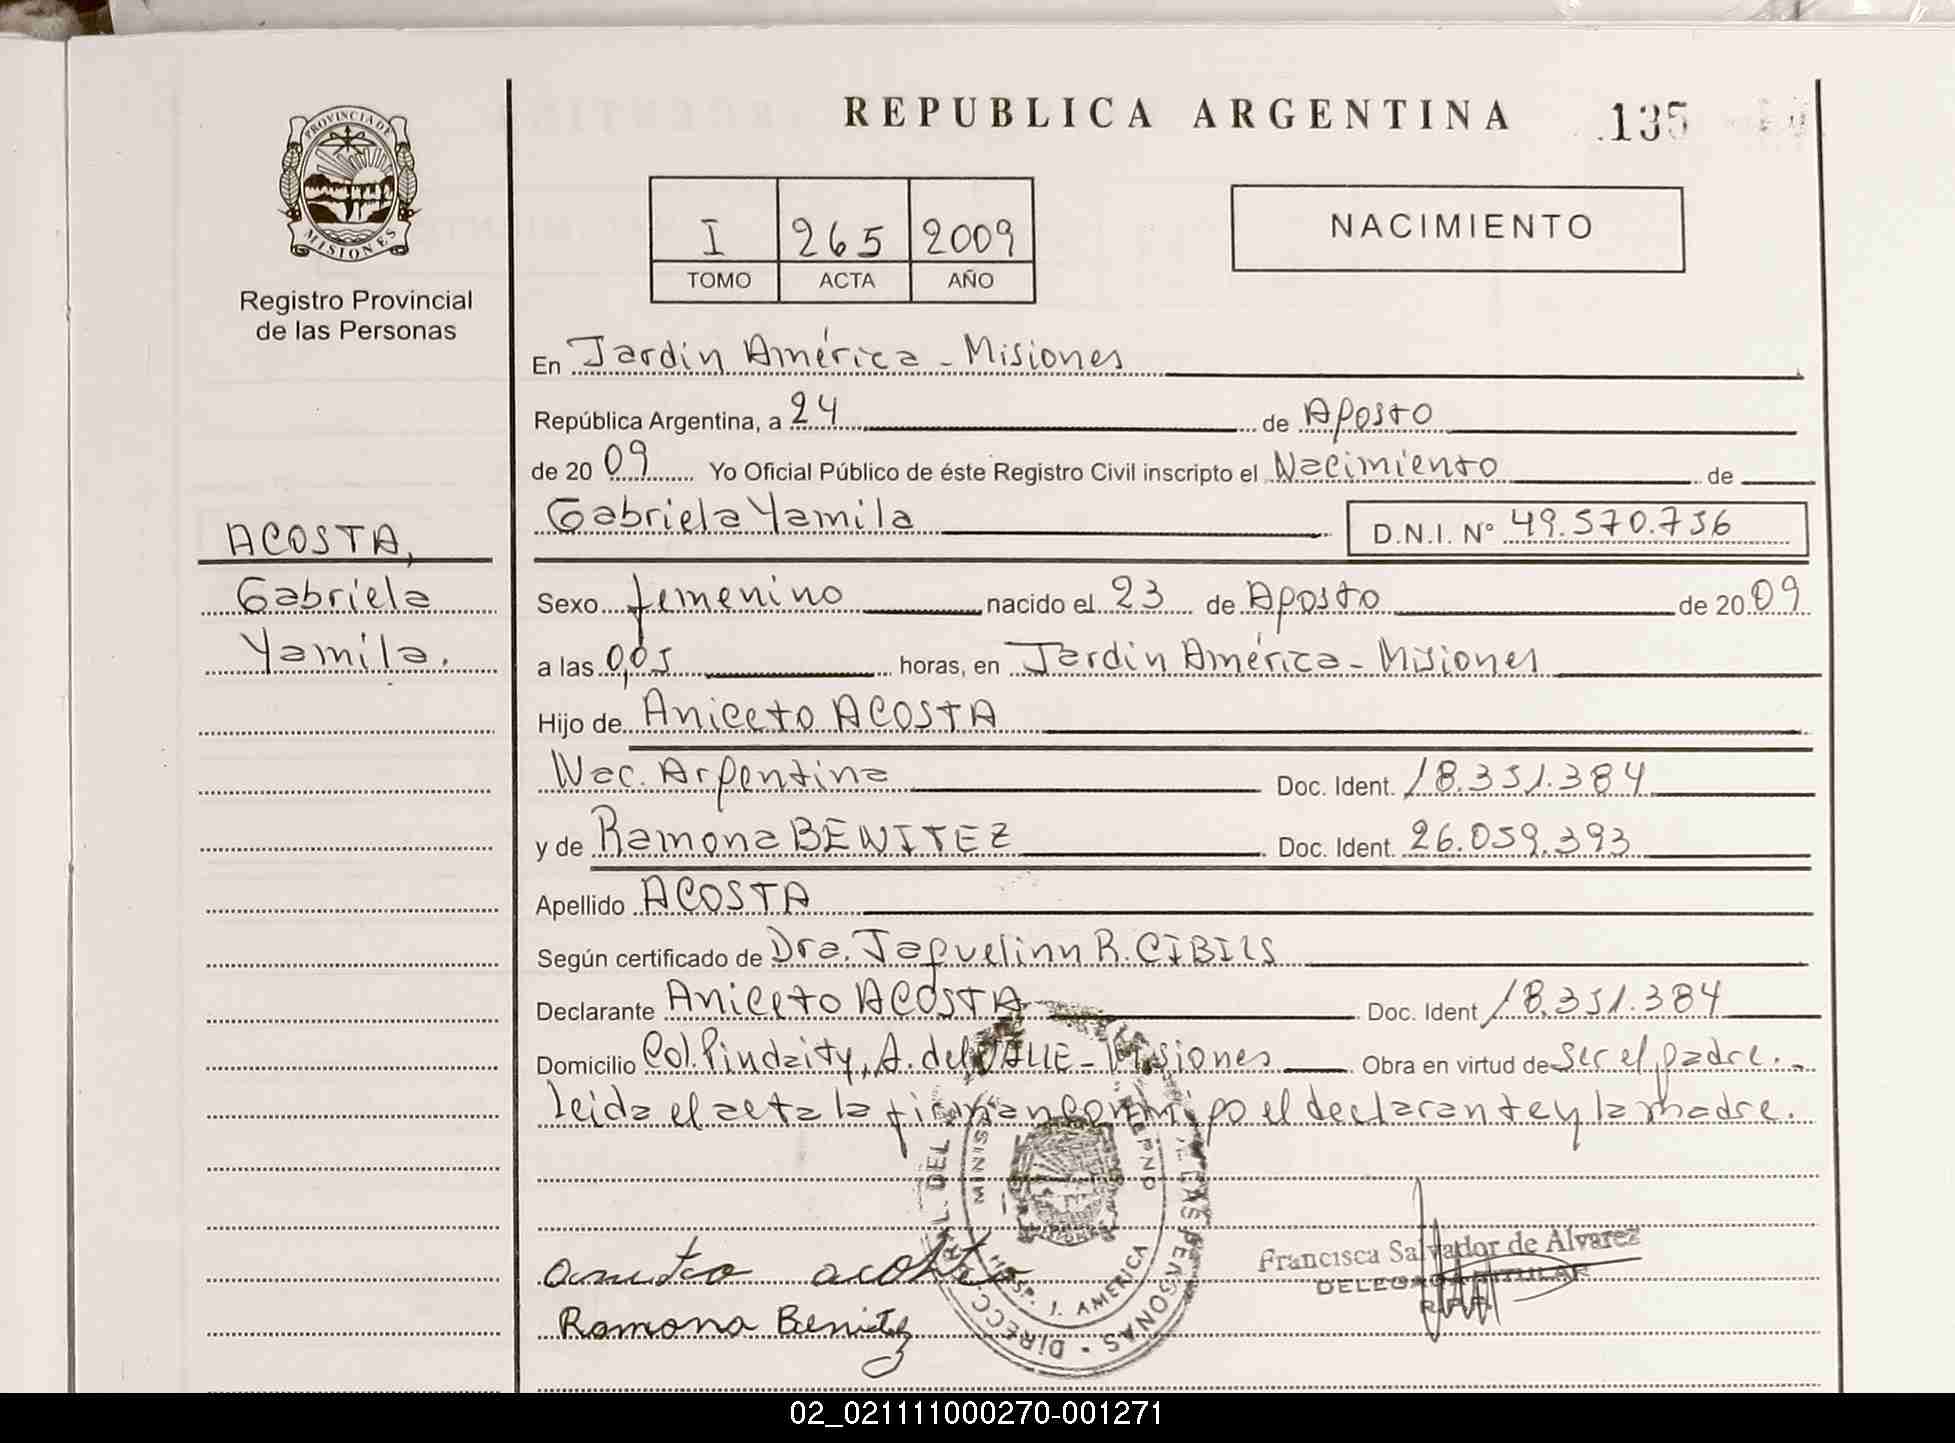 REPUBLICA ARGENTINA
135
PROVINCIA DE
MISIONES
Registro Provincial
de las Personas
I 265 2009
TOMO ACTA AÑO
NACIMIENTO
En Jardín América - Misiones
República Argentina, a 24 de Agosto
de 20 09 Yo Oficial Público de éste Registro Civil inscripto el Nacimiento de
Gabriela Yamila D.N.I. N° 49.570.736
ACOSTA,
Gabriela
Yamila.
Sexo femenino nacido el 23 de Agosto de 20 09
a las 0,05 horas, en Jardín América - Misiones
Hijo de Aniceto ACOSTA
Nac. Argentina Doc. Ident. 18.351.384
y de Ramona BENITEZ Doc. Ident. 26.059.393
Apellido ACOSTA
Según certificado de Dra. Jaquelinn R. CIBILS
Declarante Aniceto ACOSTA Doc. Ident 18.351.384
Domicilio Col. Pindaity, A. del VALLE - Misiones Obra en virtud de ser el padre.-
Leida el acta la firman conmigo el declarante y la madre.
HOSP. J. AMERICA
Francisca Salvador de Alvarez
DELEGADA TITULAR
R.P.P.
aniceto acosta
Ramona Benitez
02_021111000270-001271